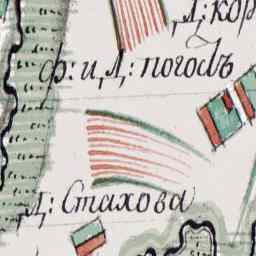 Д: кор
ф: и Д: погосτъ
Д: Стахова